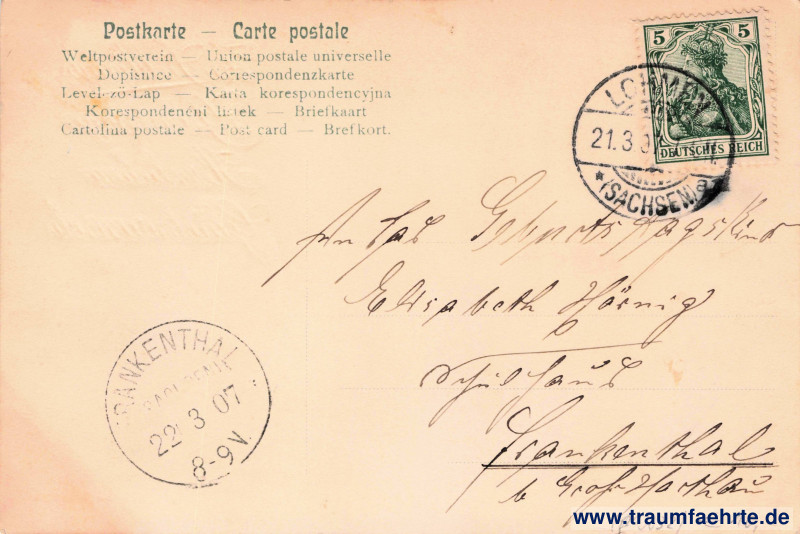 Postkarte — Carte postale
Weltpostverein — Union postale universelle
Dopisnice — Correspondenzkarte
Levelező-Lap — Karta korespondencyjna
Korespondenční lístek — Briefkaart
Cartolina postale — Post card — Brefkort.
5 5
DEUTSCHES REICH
LOHMEN
21.3.07
* (SACHSEN) a
An das Geburtstagskind
Elisabeth Hörnig
Schulhaus
Frankenthal
b Groß Harthau
FRANKENTHAL
(SACHSEN)
22 3 07
8-9V.
www.traumfaehrte.de